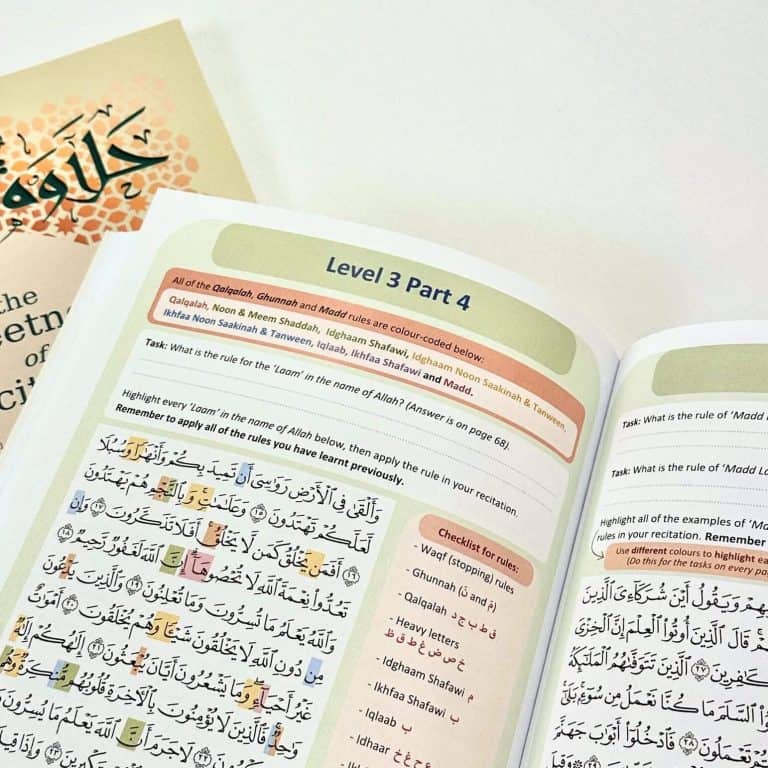 حلاوة
the
of
Level 3 Part 4
All of the Qalqalah, Ghunnah and Madd rules are colour-coded below:
Qalqalah, Noon & Meem Shaddah, Idghaam Shafawi, Idghaam Noon Saakinah & Tanween,
Ikhfaa Noon Saakinah & Tanween, Iqlaab, Ikhfaa Shafawi and Madd.
Task: What is the rule for the ‘Laam’ in the name of Allah? (Answer is on page 68).
Highlight every ‘Laam’ in the name of Allah below, then apply the rule in your recitation.
Remember to apply all of the rules you have learnt previously.
وَأَلْقَىٰ فِي ٱلْأَرْضِ رَوَٰسِيَ أَن تَمِيدَ بِكُمْ وَأَنْهَٰرًا وَسُبُلًا
لَّعَلَّكُمْ تَهْتَدُونَ ١٥ وَعَلَٰمَٰتٍ وَبِٱلنَّجْمِ هُمْ يَهْتَدُونَ
١٦ أَفَمَن يَخْلُقُ كَمَن لَّا يَخْلُقُ أَفَلَا تَذَكَّرُونَ ١٧ وَإِن
تَعُدُّوا۟ نِعْمَةَ ٱللَّهِ لَا تُحْصُوهَآ إِنَّ ٱللَّهَ لَغَفُورٌ رَّحِيمٌ ١٨
وَٱللَّهُ يَعْلَمُ مَا تُسِرُّونَ وَمَا تُعْلِنُونَ ١٩ وَٱلَّذِينَ يَدْعُونَ
مِن دُونِ ٱللَّهِ لَا يَخْلُقُونَ شَيْـًٔا وَهُمْ يُخْلَقُونَ ٢٠ أَمْوَٰتٌ
غَيْرُ أَحْيَآءٍ وَمَا يَشْعُرُونَ أَيَّانَ يُبْعَثُونَ ٢١ إِلَٰهُكُمْ إِلَٰهٌ
وَٰحِدٌ فَٱلَّذِينَ لَا يُؤْمِنُونَ بِٱلْأَخِرَةِ قُلُوبُهُم مُّنكِرَةٌ وَهُم
٢٢ لَا جَرَمَ أَنَّ ٱللَّهَ يَعْلَمُ مَا يُسِرُّونَ
٢٣ وَإِذَا قِيلَ
Checklist for rules:
- Waqf (stopping) rules
- Ghunnah (نّ and مّ)
- Qalqalah ق ط ب ج د
- Heavy letters
خ ص ض غ ط ق ظ
- Idghaam Shafawi م
- Ikhfaa Shafawi ب
- Iqlaab ب
- Idhaar
Task: What is the rule of ‘Madd
Task: What is the rule of ‘Madd
Highlight all of the examples of ‘Mad
rules in your recitation. Remember
Use different colours to highlight
(Do this for the tasks on every
وَيَقُولُ أَيْنَ شُرَكَآءِيَ ٱلَّذِينَ
قَالَ ٱلَّذِينَ أُوتُوا۟ ٱلْعِلْمَ إِنَّ ٱلْخِزْيَ
٢٧ ٱلَّذِينَ تَتَوَفَّىٰهُمُ ٱلْمَلَٰٓئِكَةُ
ٱلسَّلَمَ مَا كُنَّا نَعْمَلُ مِن سُوٓءٍۭ بَلَىٰٓ
تَعْمَلُونَ ٢٨ فَٱدْخُلُوٓا۟ أَبْوَٰبَ جَهَنَّمَ